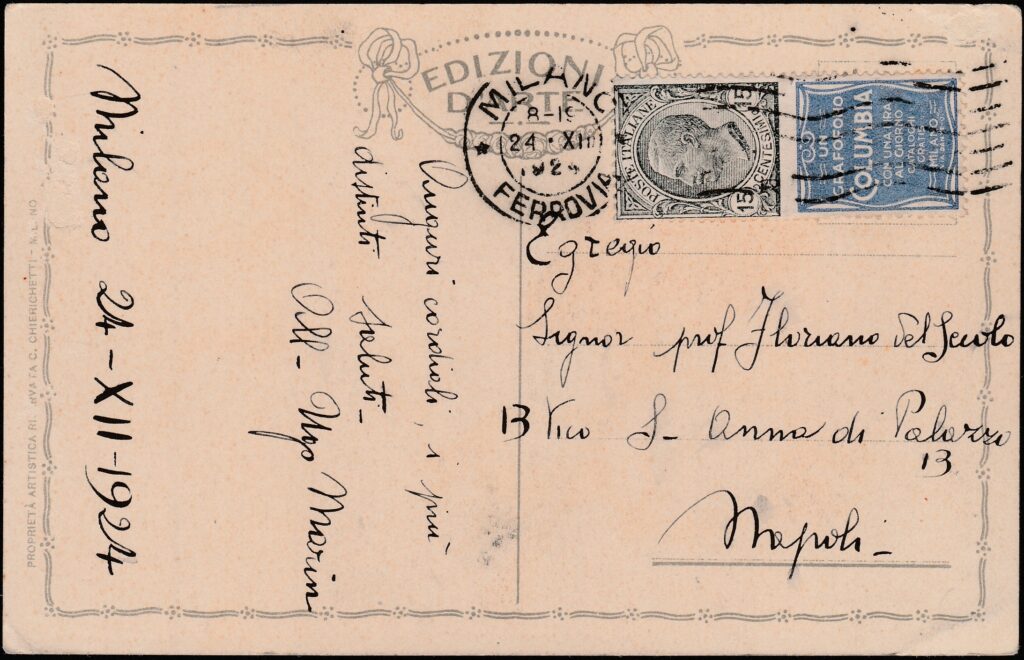 EDIZIONI
D'ARTE
MILANO
8-19
24·XII
1924
FERROVIA
POSTE ITALIANE
15
CENTESIMI
15
UN
GRAFOFONO
COLUMBIA
CON UNA LIRA
AL GIORNO
CATALOGHI
GRATIS
MILANO
Milano 24-XII-1924
Auguri cordiali, i più
distinti saluti-
Ugo Marin
Egregio
Signor prof Floriano del Secolo
13 Vico S- Anna di Palazzo
13
Napoli-
PROPRIETÀ ARTISTICA C. CHIERICHETTI - MILANO